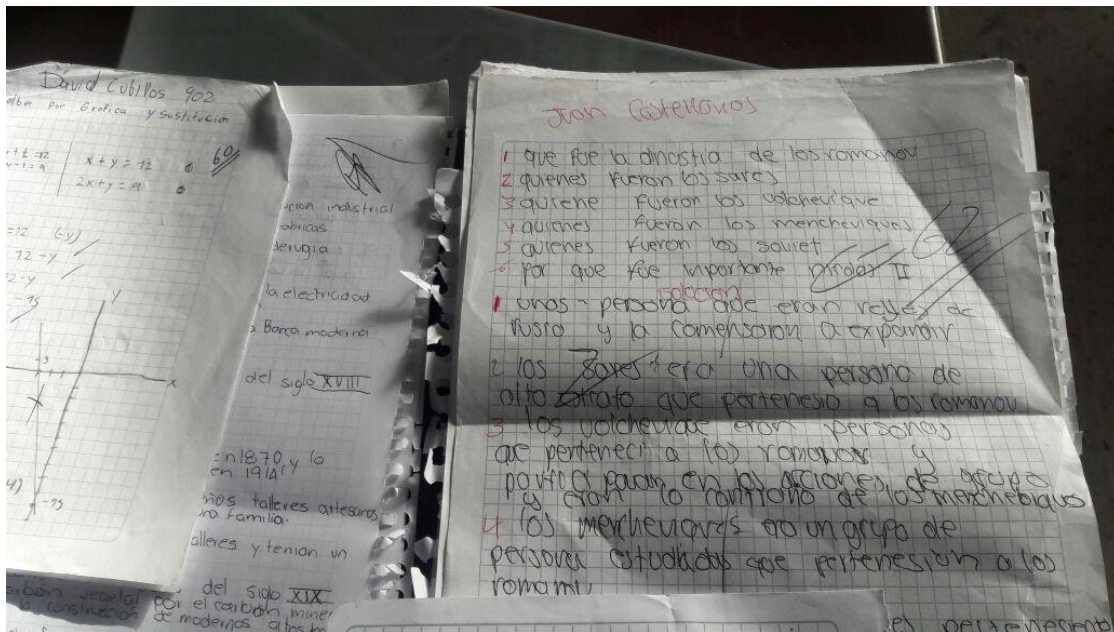 David Cubillos 902
por Grafica y sostitucion
x + y = 12
2x + y = 9
60
= 12 (-y)
12 - y
2 - y
-15
y
x
-3
-15
industrial
la electricidad
Banca moderna
del siglo XVIII
en 1870 y la
en 1914
talleres artesanos
familia.
alleres y tenian un
del siglo XIX
carbon vegetal por el carbon
construccion de modernos
Juan Castellanos
1 que foe la dinastia de los romanov
2 quienes fueron los sares
3 quiene fueron los volchevique
4 quienes fueron los mencheviques
5 quienes fueron los soviet
6 por que foe importante nicolas II
62
solocion
1 unos - persona que eran reyes de
rusia y la comensaron a expandir
2 los sares era una persona de
alto strato que pertenesio a los romanov
3 los volchevique eron personas
que perteneci a los romanov y
en las acciones de grupo
y eran lo contrario de los
4 los mercheviques ero un grupo de
persona estudiadas que pertenesion a los